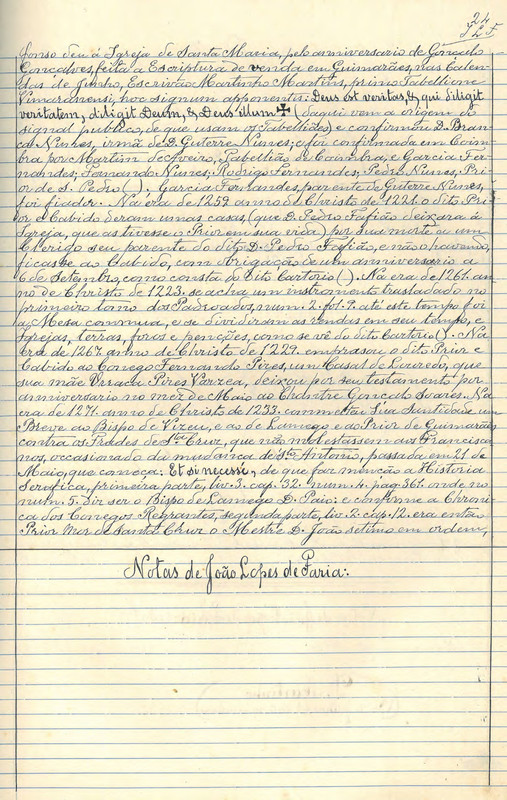 24
fonso deu á Igreja de Santa Maria, pelo anniversario de Gonçalo
Gonçalves, feita a Escriptura de venda em Guimarães, nas Calen-
das de Junho, Escrivão Martinho Martins, primo Tabellione
Vimaranensi, hoc signum apponentis: Deus est veritas, & qui diligit
veritatem, diligit Deum, & Deus illum ✝ (daqui vem a origem do
signal publico, de que usam os Tabelliães) e confirmou D. Bran-
ca Nunes, irmã de D. Guterre Nunes; e foi confirmada em Coim-
bra por Martim de Aveiro, Tabellião de Coimbra, e Garcia Fer-
nandes; Fernando Nunes; Rodrigo Fernandes; Pedro Nunes; Pri-
or de S. Pedro ( ), Garcia Fernandes, parente de Guterre Nunes,
foi fiador. Na era de 1259 anno de Christo de 1221. o dito Pri-
or e Cabido deram umas casas (que D. Pedro Fafião deixara á
Igreja, que as tivesse o Prior em sua vida) por sua morte a um
Clerigo seu parente do dito D. Pedro Fafião, e não o havendo,
ficasse ao Cabido, com obrigação de um anniversario a
6 de Setembro, como consta do dito Cartorio ( ). Na era de 1261. an-
no de Christo de 1223. se acha um instromento trasladado no
primeiro tomo dos Padroados, num. 2. fol. P. até este tempo foi
a Mesa commua, e se dividiram as rendas em seu tempo, e
Igrejas, terras, foros e penções, como se vê do dito Cartorio ( ). Na
era de 1267. anno de Christo de 1229. emprasou o dito Prior e
Cabido ao Conego Fernando Pires, um Casal de Louredo, que
sua mãe Uraca Pires Varzea, deixou por seu testamento por
anniversario no mez de Maio ao Chantre Gonçalo Soares. Na
era de 1271. anno de Christo de 1233. commetteu Sua Santidade um
Breve ao Bispo de Vizeu, e ao de Lamego e ao Prior de Guimarães
contra os Frades de Sta Cruz, que não molestassem aos Francisca-
nos, occasionado da mudança de Sto Antonio, passada em 21 de
Maio, que começa: Et si necesse, de que faz menção a Historia
Serafica, primeira parte, liv. 3. cap. 32. num. 4. pag. 361. onde no
num. 5. diz ser o Bispo de Lamego D. Paio: e conforme a Chroni-
ca dos Conegos Regrantes, segunda parte, liv. 2. cap. 12. era então
Prior Mor de Santa Cruz o Mestre D. João setimo em ordem,
Notas de João Lopes de Faria: